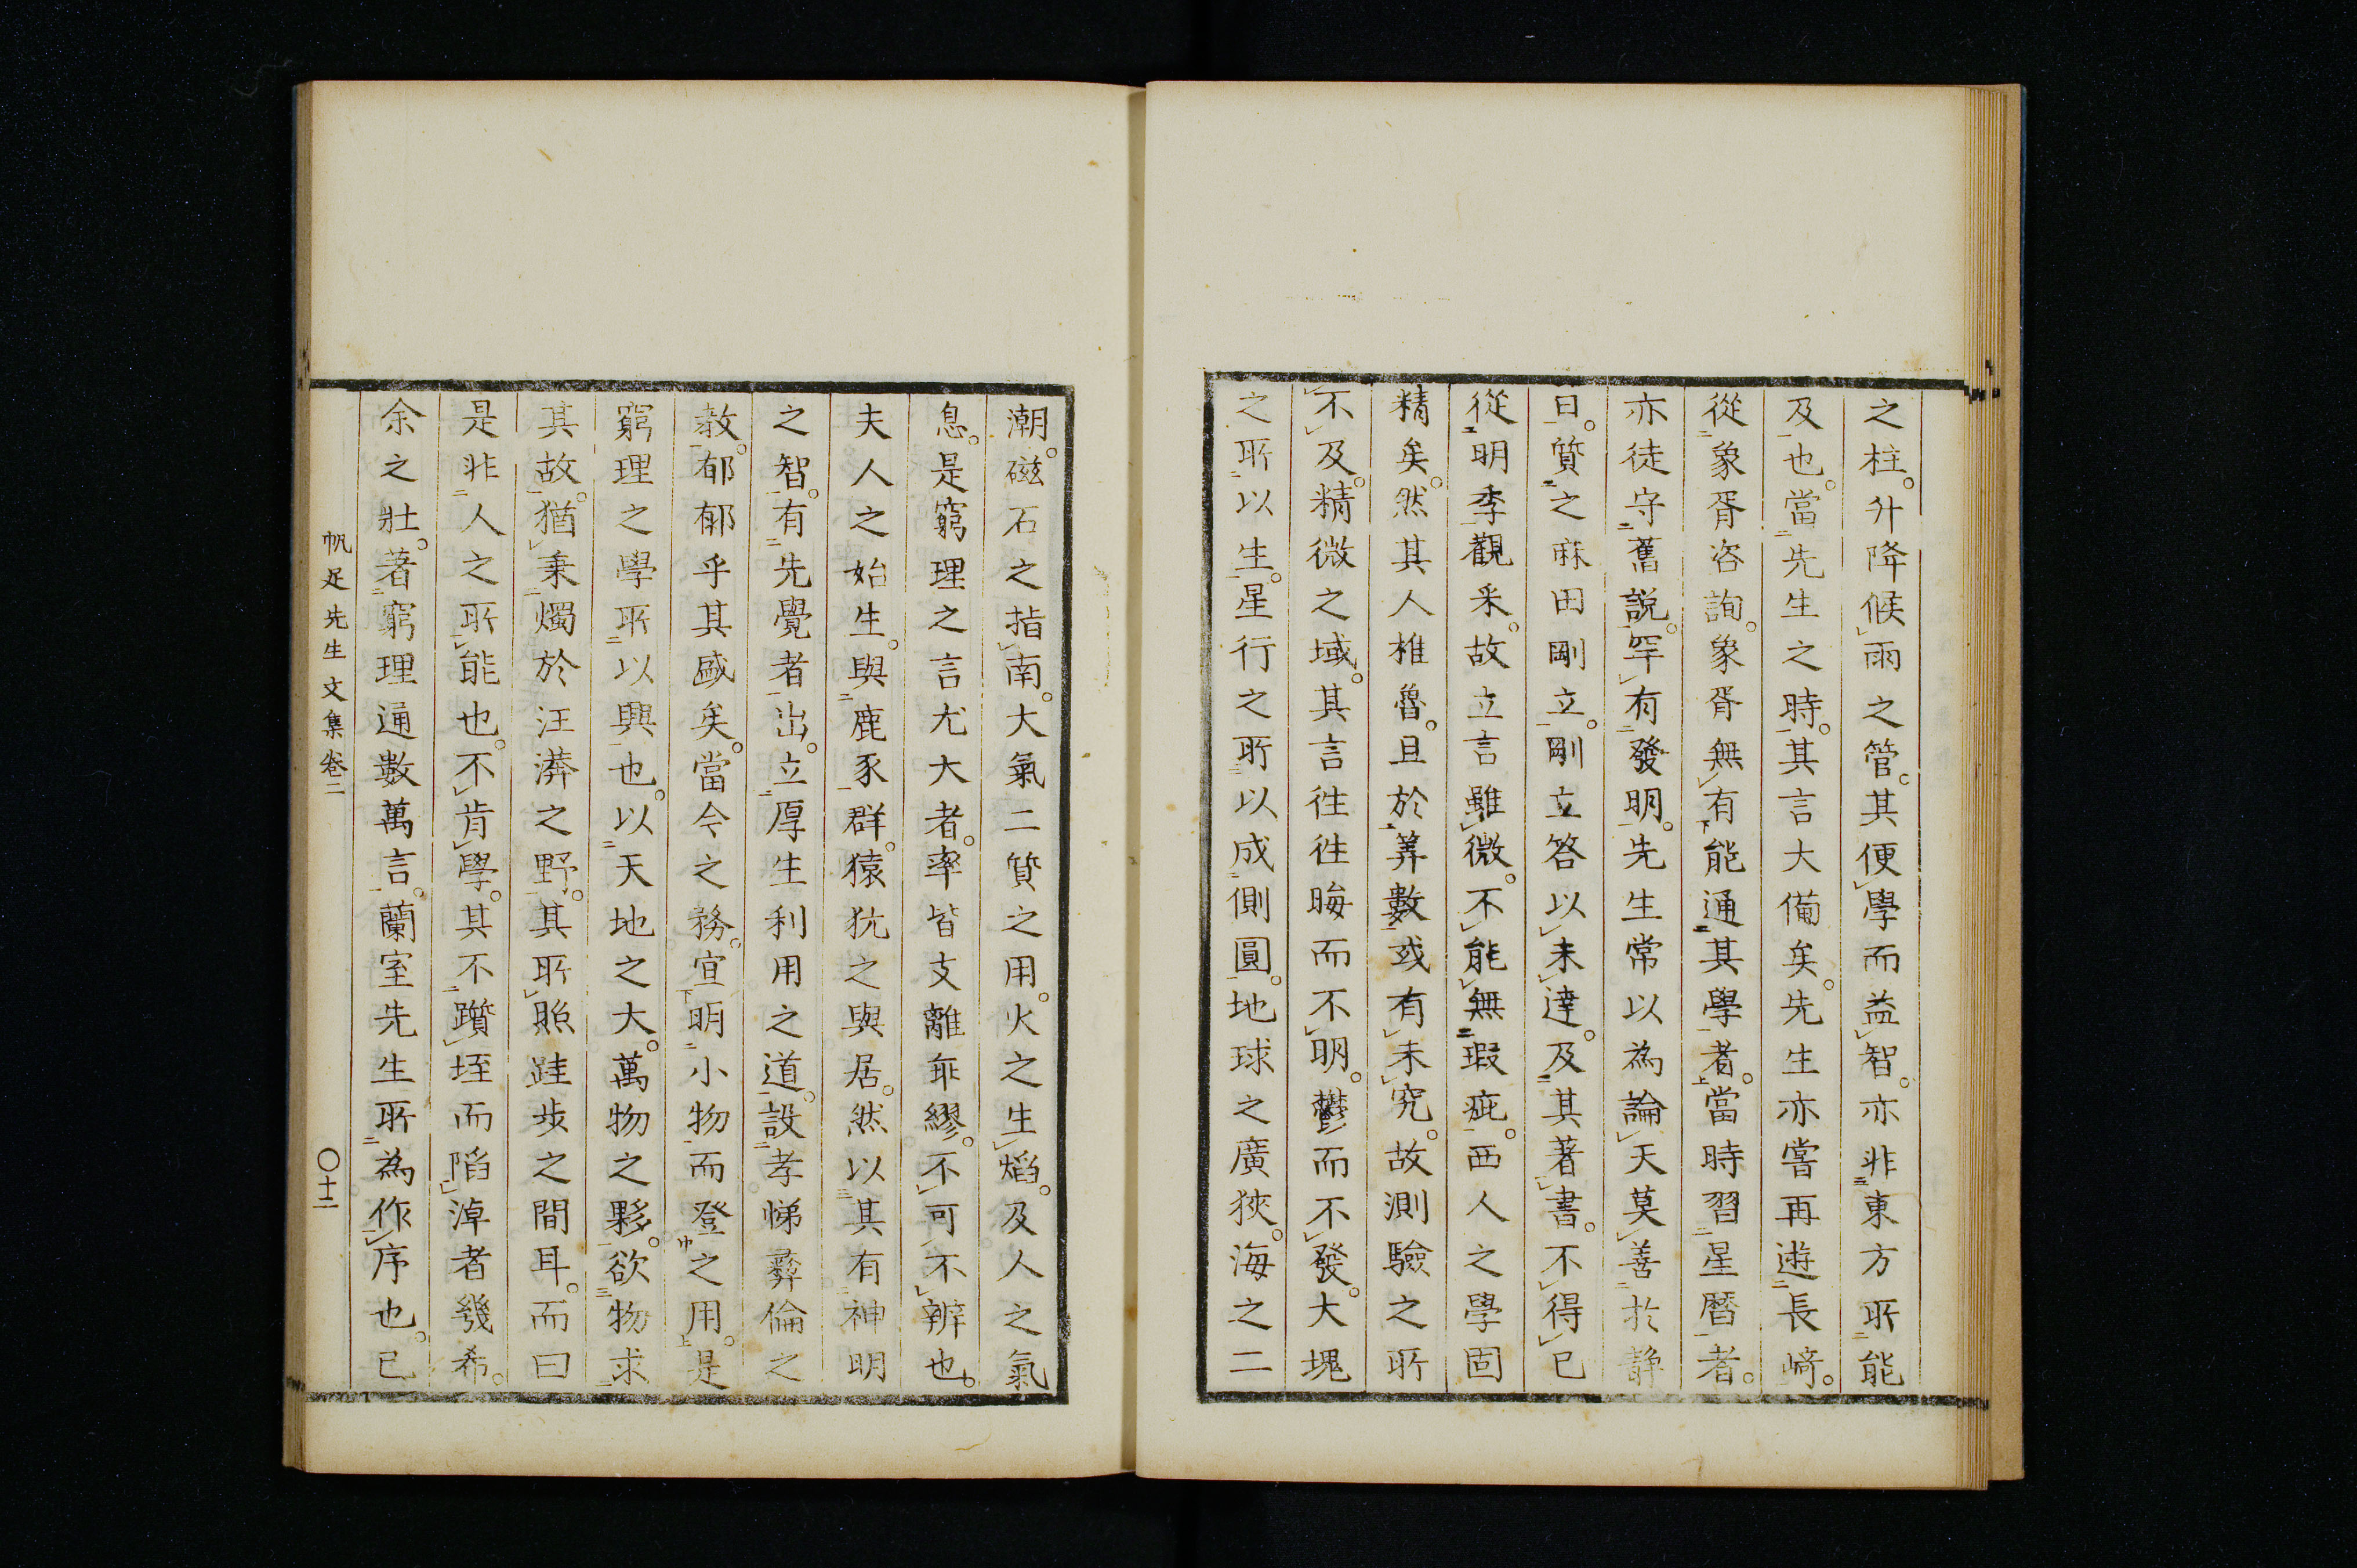 之柱。升降候雨之管。其便學而益智。亦非東方所能
及也。當先生之時。其言大備矣。先生亦嘗再遊長﨑。
從象胥咨詢。象胥無有能通其學者。當時習星曆者。
亦徒守舊說。罕有發明。先生常以為論天莫善於靜
曰。質之麻田剛立。剛立答以未達。及其著書。不得已
從明季觀釆。故立言雖微。不能無瑕疵。西人之學固
精矣。然其人椎魯。且於筭數或有未究。故測驗之所
不及。精微之域。其言徃徃晦而不明。鬱而不發。大塊
之所以生。星行之所以成側圓。地球之廣狹。海之二
潮。磁石之指南。大氣二質之用。火之生焰。及人之氣
息。是窮理之言尤大者。率皆支離乖繆。不可不辨也。
夫人之始生。與鹿豕群。猿狖之與居。然以其有神明
之智。有先覺者出。立厚生利用之道。設孝悌彞倫之
敎。郁郁乎其盛矣。當今之務。宜明小物而登之用。是
窮理之學所以興也。以天地之大。萬物之夥。欲物求
其故。猶秉燭於汪漭之野。其所照跬步之間耳。而曰
是非人之所能也。不肯學。其不躓垤而陷淖者幾希。
余之壯。著窮理通數萬言。蘭室先生所為作序也。已
帆足先生文集卷二
〇十二